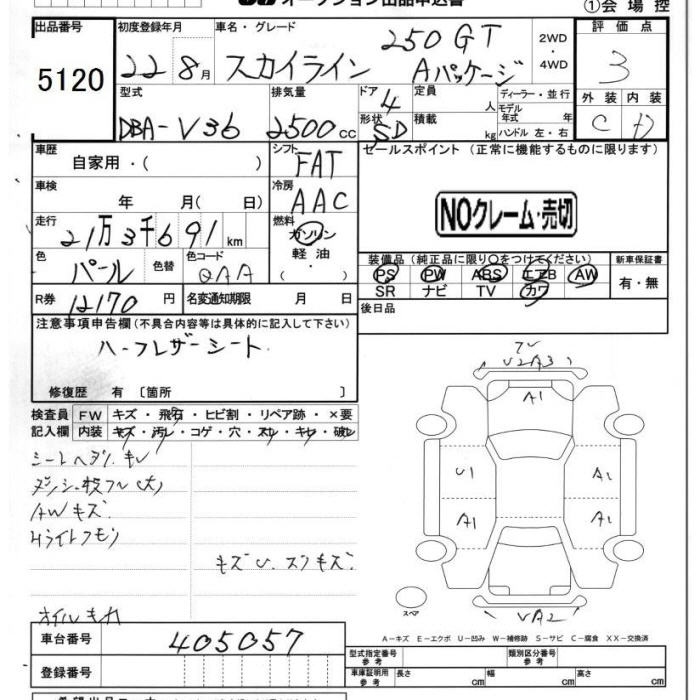 オークション出品申込書
①会場控
出品番号
5120
初度登録年月
22 8月
車名・グレード
スカイライン
250GT
Aパッケージ
2WD
・
4WD
評価点
3
外装 内装
C D
型式
DBA-V36
排気量
2500cc
ドア 4
形状 SD
定員 人
積載 kg
ディーラー・並行
モデル
年式 年
ハンドル 左・右
車歴
自家用・( )
シフト
FAT
車検
年 月( 日)
冷房
AAC
走行
21万3千691km
燃料
ガソリン
・
軽油
・
( )
色
パール
色替
色コード
QAA
R券
12170円
名変通知期限 月 日
セールスポイント(正常に機能するものに限ります)
NOクレーム・売切
装備品(純正品に限り○をつけてください)
PS PW ABS エアB AW
SR ナビ TV カワ
新車保証書
有・無
後日品
注意事項申告欄(不具合内容等は具体的に記入して下さい)
ハーフレザーシート
修復歴 有〔箇所 〕
検査員
記入欄
FW キズ・飛石・ヒビ割・リペア跡・×要
内装 キズ・汚レ・コゲ・穴・スレ・キレ・破レ
AWキズ
キズU.スリキズ
V2A3
A1
U1
A1
A1
A1
VA2
スペア
A-キズ E-エクボ U-凹み W-補修跡 S-サビ C-腐食 XX-交換済
車台番号
405057
登録番号
型式指定番号
参考
類別区分番号
参考
車庫証明用
参考
長さ cm 幅 cm 高さ cm